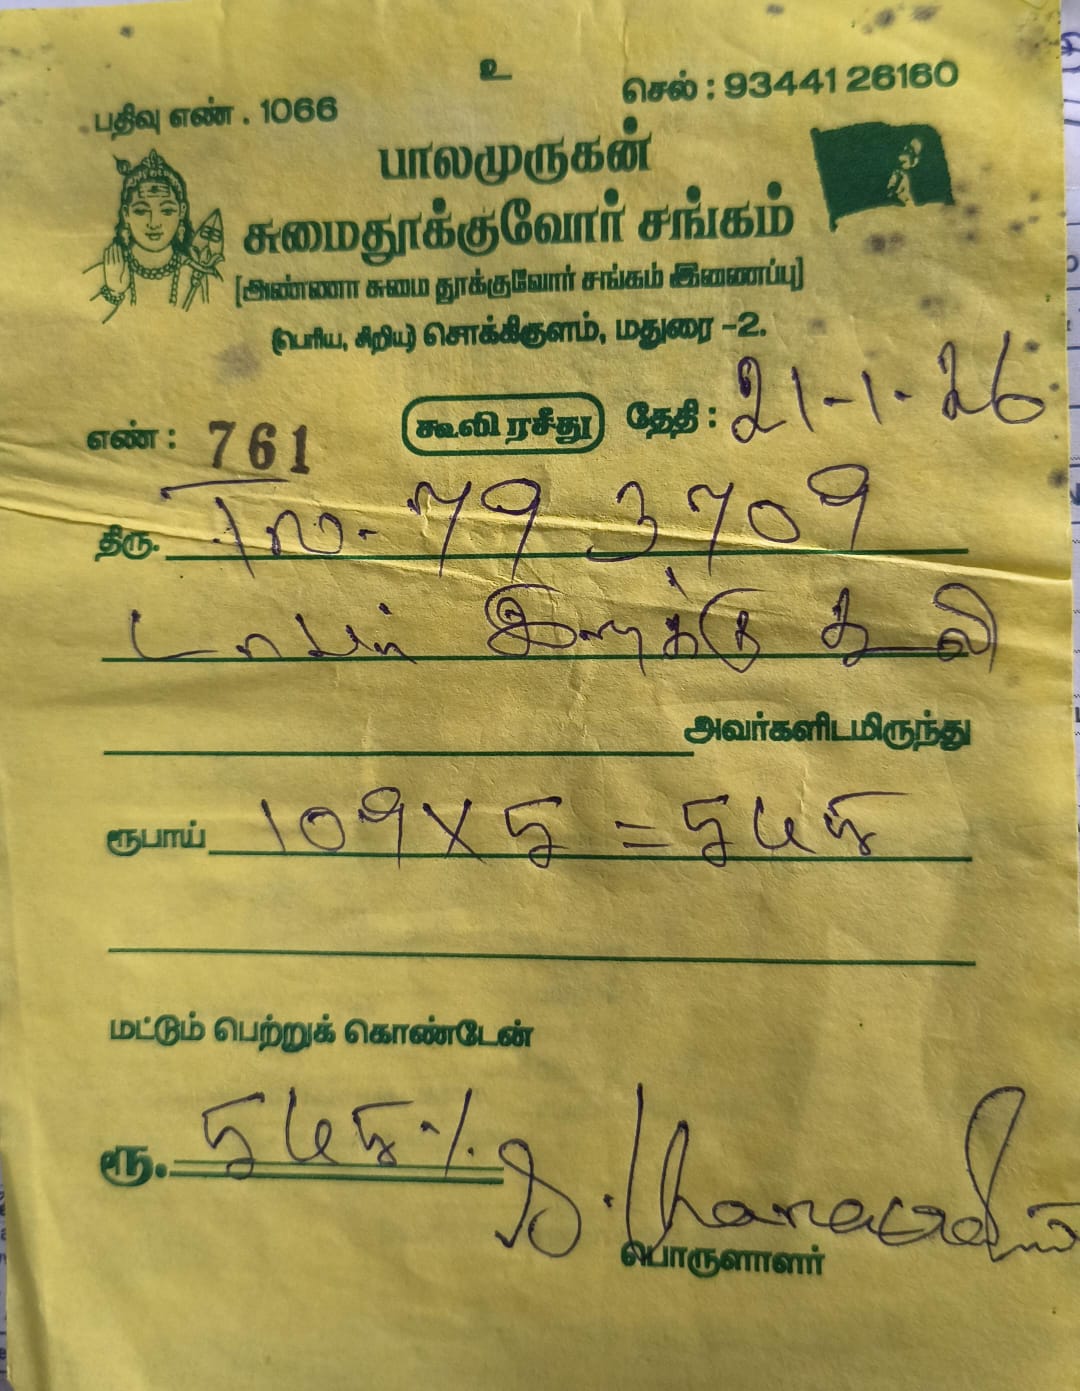 உ
பதிவு எண் . 1066 செல் : 93441 26160
பாலமுருகன்
சுமைதூக்குவோர் சங்கம்
[அண்ணா சுமை தூக்குவோர் சங்கம் இணைப்பு]
(பெரிய, சிறிய) சொக்கிகுளம், மதுரை -2.
எண் : 761 கூலி ரசீது தேதி : 21-1-26
திரு. TN- 79 3709
இறக்கு கூலி
அவர்களிடமிருந்து
ரூபாய் 109 X 5 = 545
மட்டும் பெற்றுக் கொண்டேன்
ரூ. 545-/.
பொருளாளர்